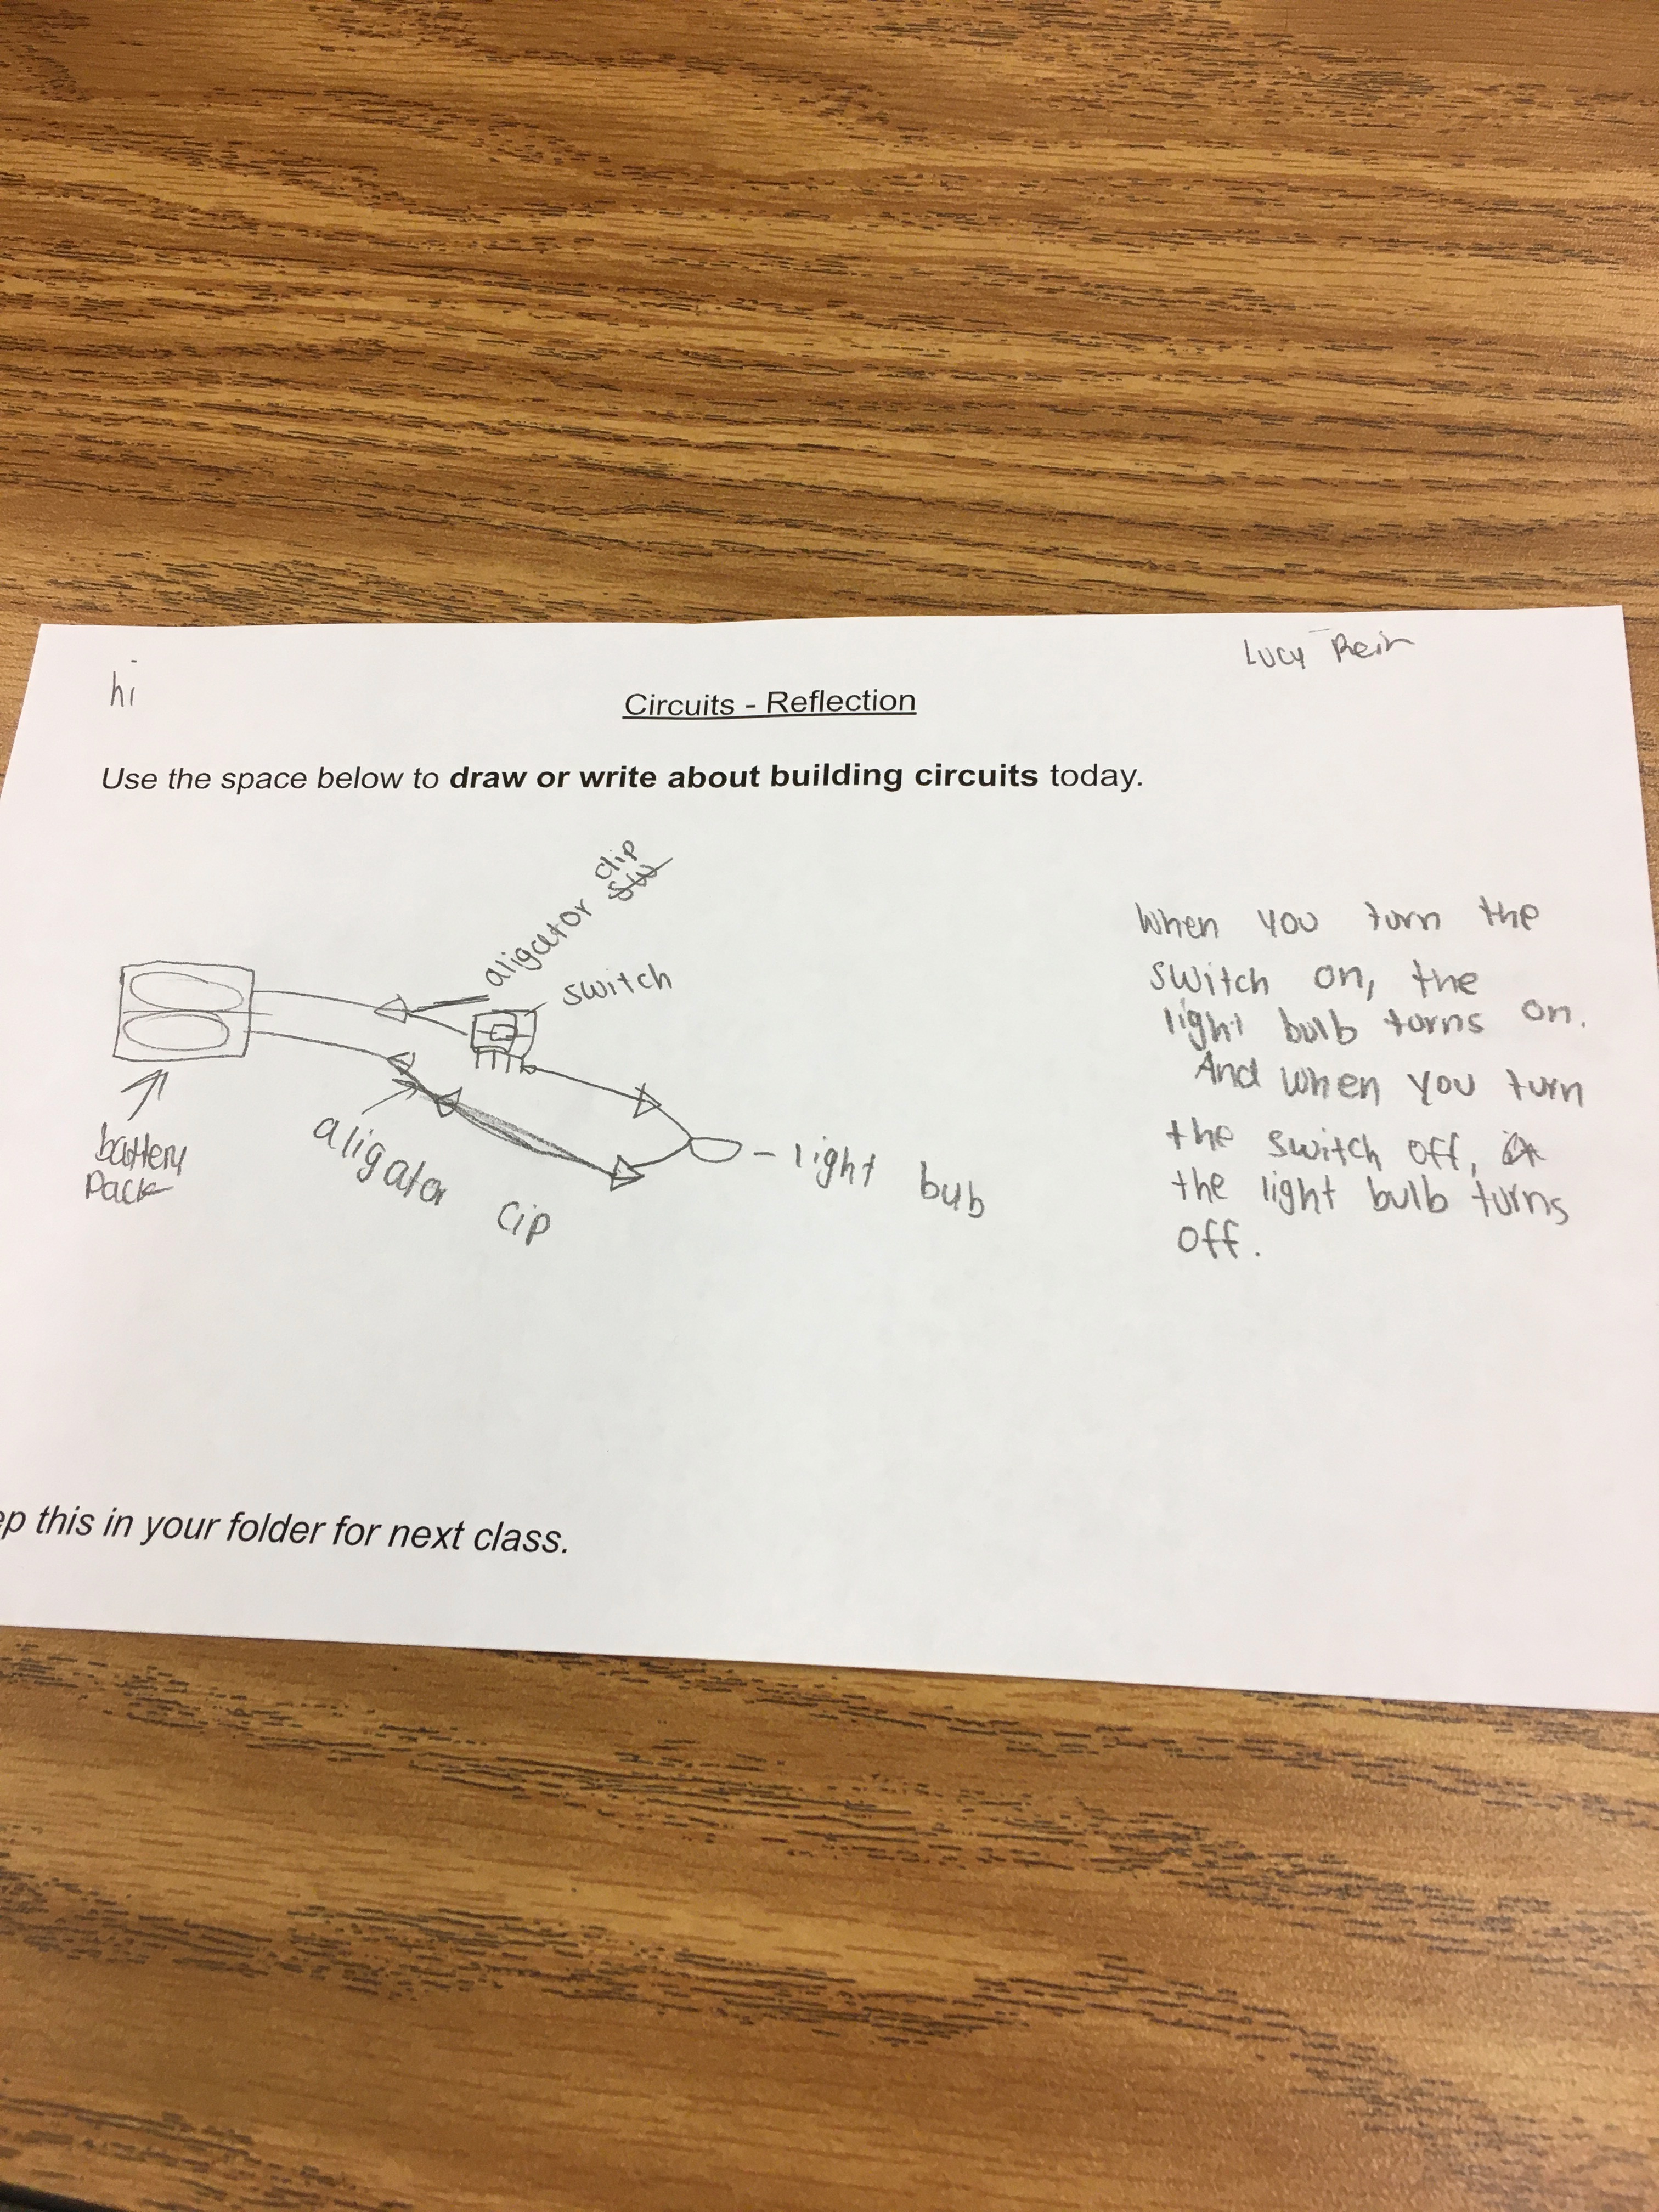 hi
Lucy Rein
Circuits - Reflection
Use the space below to draw or write about building circuits today.
aligator clip
switch
battery
pack
aligator cip
light bub
When you turn the
switch on, the
light bulb turns on.
And when you turn
the switch off,
the light bulb turns
off.
ep this in your folder for next class.